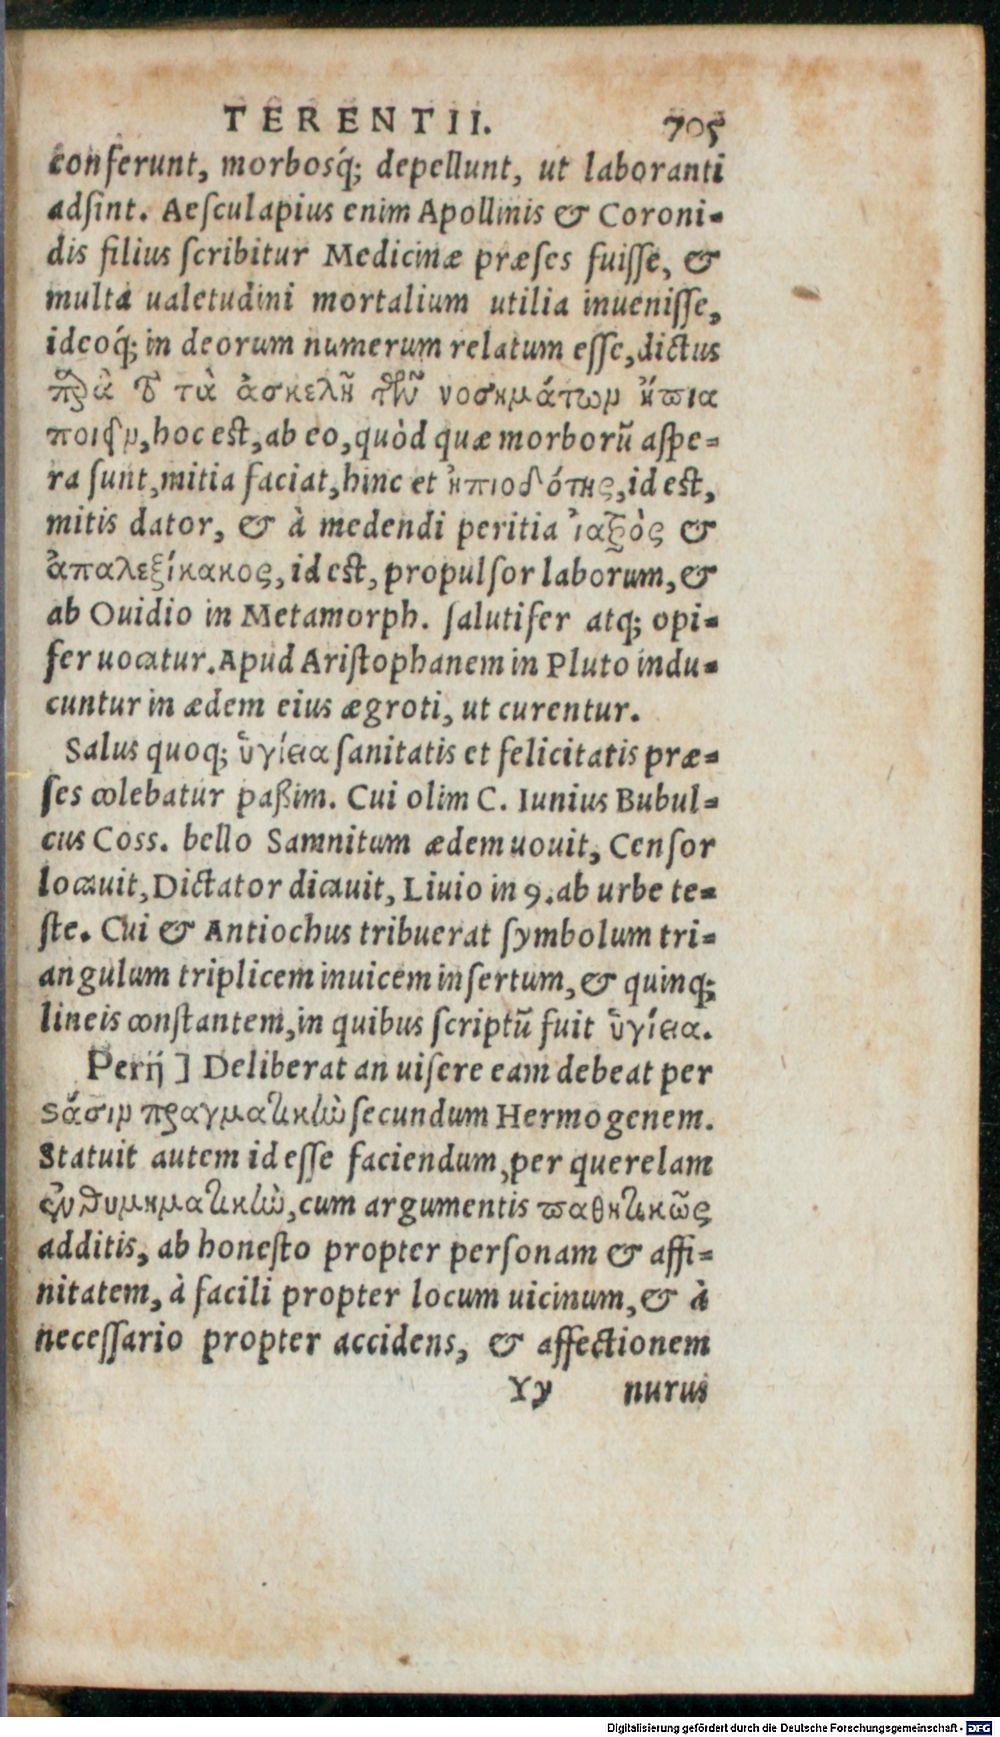 TERENTII. 705
conferunt, morbosq́; depellunt, ut laboranti
adſint. Aeſculapius enim Apollinis & Coroni-
dis filius ſcribitur Medicinæ præſes fuiſſe, &
multa ualetudini mortalium utilia inueniſſe,
ideoq́; in deorum numerum relatum eſſe, dictus
παρὰ τὸ τὰ ἀσκελῆ τῶν νοσημάτων ἤπια
ποιεῖν, hoc est, ab eo, quòd quæ morborũ aſpe-
ra ſunt, mitia faciat, hinc et ἠπιοδότης, id est,
mitis dator, & à medendi peritia ἰατρὸς &
ἀπαλεξίκακος, id est, propulſor laborum, &
ab Ouidio in Metamorph. ſalutifer atq; opi-
fer uocatur. Apud Ariſtophanem in Pluto indu-
cuntur in ædem eius ægroti, ut curentur.
Salus quoq; ὑγίεια ſanitatis et felicitatis præ-
ſes colebatur paßim. Cui olim C. Iunius Bubul-
cus Coss. bello Samnitum ædem uouit, Cenſor
locauit, Dictator dicauit, Liuio in 9. ab urbe te-
ſte. Cui & Antiochus tribuerat ſymbolum tri-
angulum triplicem inuicem inſertum, & quinq;
lineis conſtantem, in quibus ſcriptũ fuit ὑγίεια.
Perij ] Deliberat an uiſere eam debeat per
στάσιν πραγματικὴν ſecundum Hermogenem.
Statuit autem id eſſe faciendum, per querelam
ἐνθυμηματικὴν, cum argumentis παθητικῶς
additis, ab honeſto propter perſonam & affi-
nitatem, à facili propter locum uicinum, & à
neceſſario propter accidens, & affectionem
Yy nurus
Digitalisierung gefördert durch die Deutsche Forschungsgemeinschaft - DFG